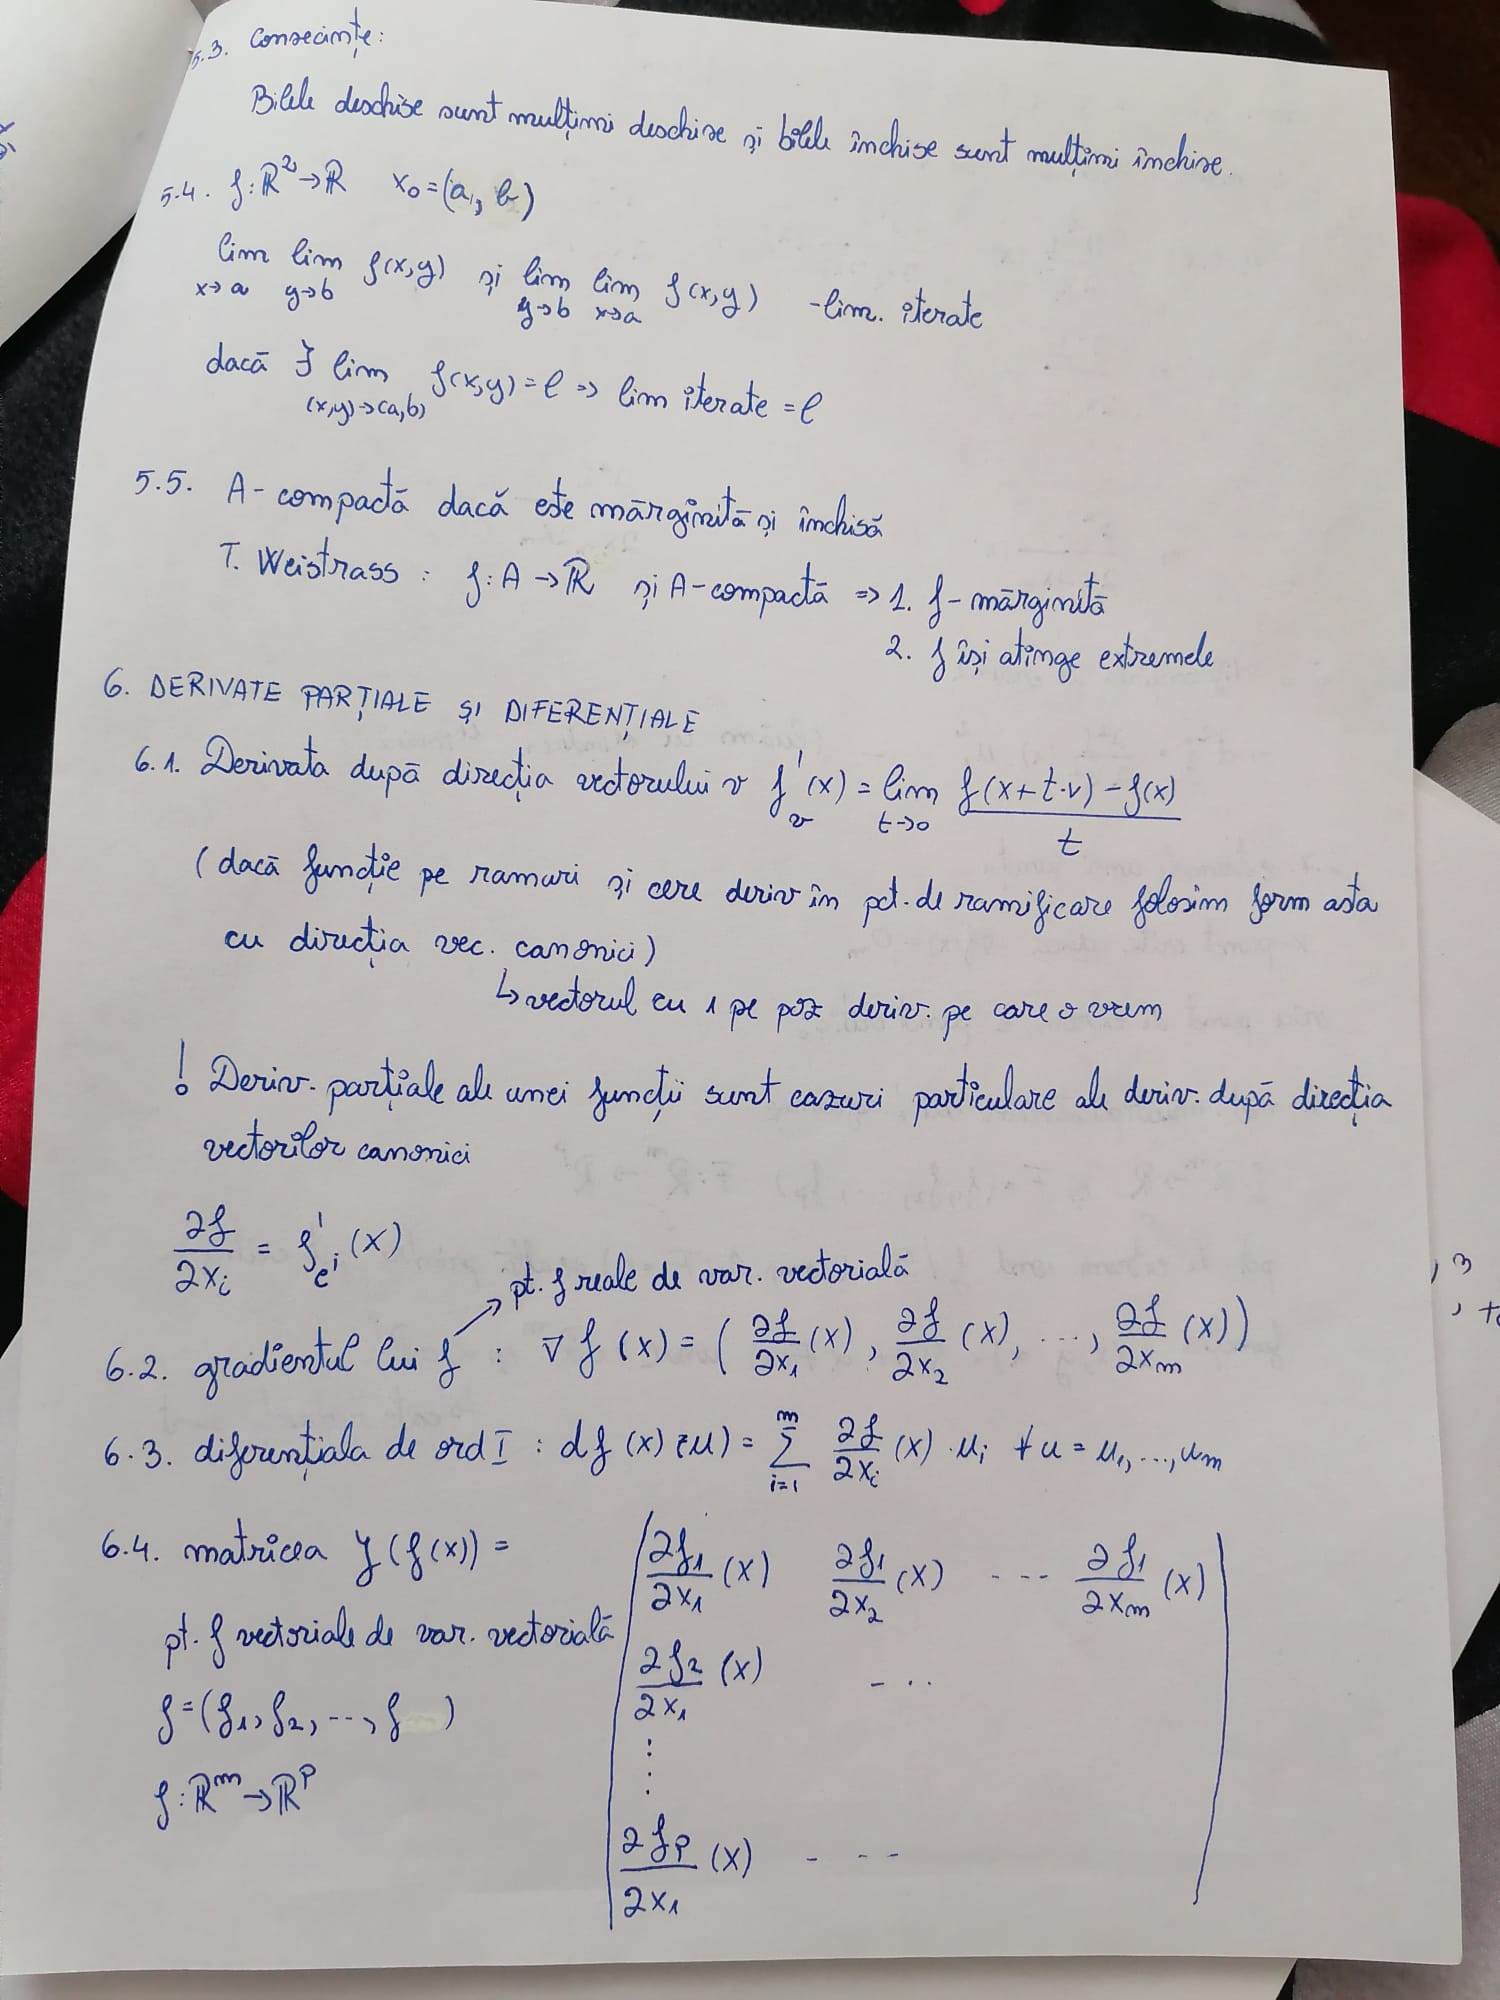 5.3. Consecințe:
Bilele deschise sunt mulțimi deschise și bilele închise sunt mulțimi închise.
5.4. f: ℝ² → ℝ x₀ = (a, b)
lim x→a lim y→b f(x,y) și lim y→b lim x→a f(x,y) - lim. iterate
dacă ∃ lim (x,y)→(a,b) f(x,y) = l => lim iterate = l
5.5. A - compactă dacă este mărginită și închisă
T. Weistrass : f: A → ℝ și A - compactă => 1. f - mărginită
2. f își atinge extremele
6. DERIVATE PARȚIALE ȘI DIFERENȚIALE
6.1. Derivata după direcția vectorului v f'ᵥ(x) = lim t→0 (f(x+t·v) - f(x)) / t
(dacă funcție pe ramuri și cere deriv în pct. de ramificare folosim form asta
cu direcția vec. canonici)
↳ vectorul cu 1 pe poz deriv. pe care o vrem
! Deriv. parțiale ale unei funcții sunt cazuri particulare ale deriv. după direcția
vectorilor canonici
∂f/∂xᵢ = f'_eⁱ (x)
pt. f reale de var. vectorială
6.2. gradientul lui f : ∇f(x) = (∂f/∂x₁ (x), ∂f/∂x₂ (x), ..., ∂f/∂xₘ (x))
6.3. diferențiala de ord I : df(x)(u) = Σ i=1 m ∂f/∂xᵢ (x) · uᵢ ∀ u = u₁, ..., uₘ
6.4. matricea J(f(x)) = | ∂f₁/∂x₁ (x) ∂f₁/∂x₂ (x) --- ∂f₁/∂xₘ (x) |
pt. f vectoriale de var. vectorială ∂f₂/∂x₁ (x) - ..
f = (f₁, f₂, ..., f )
f: ℝᵐ → ℝᵖ
∂fₚ/∂x₁ (x) - - -